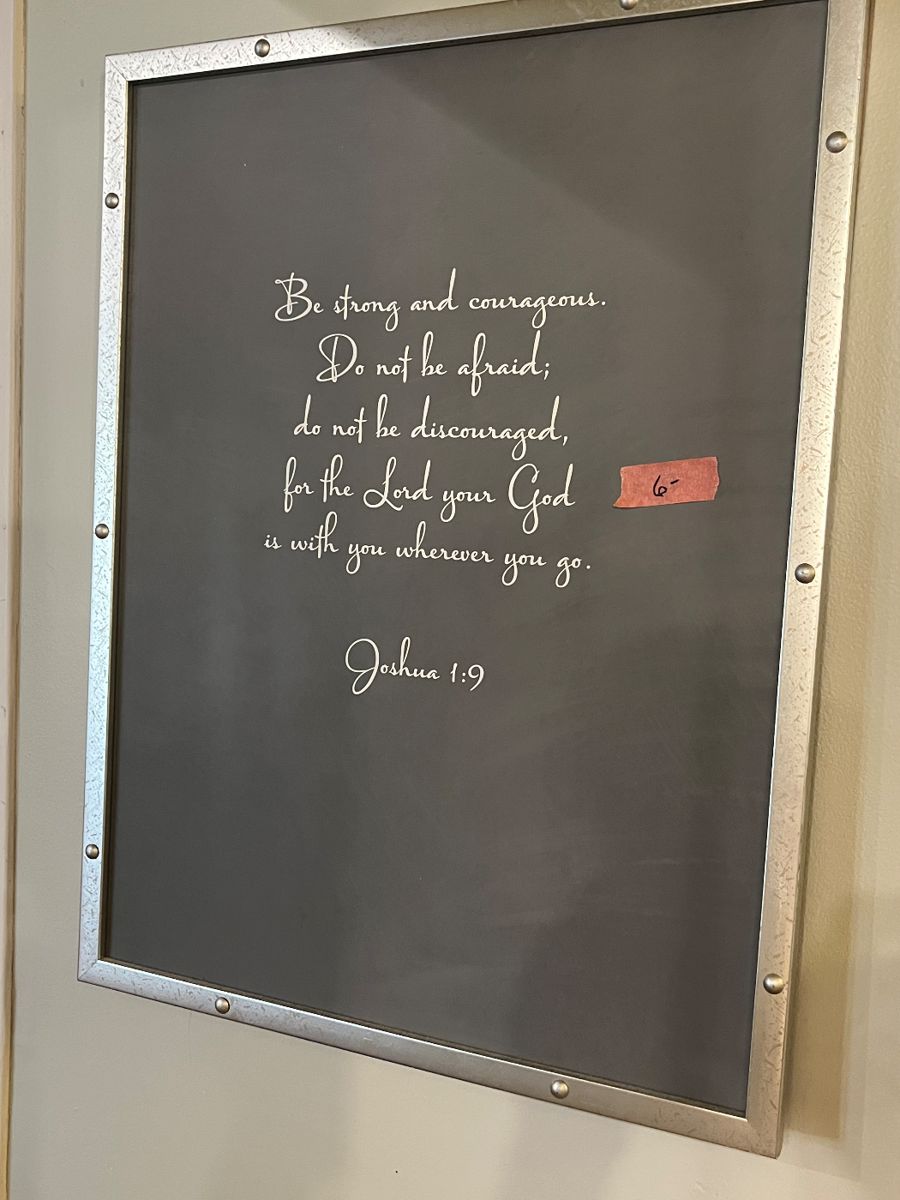 Be strong and courageous.
Do not be afraid;
do not be discouraged,
for the Lord your God
is with you wherever you go.
Joshua 1:9
6-